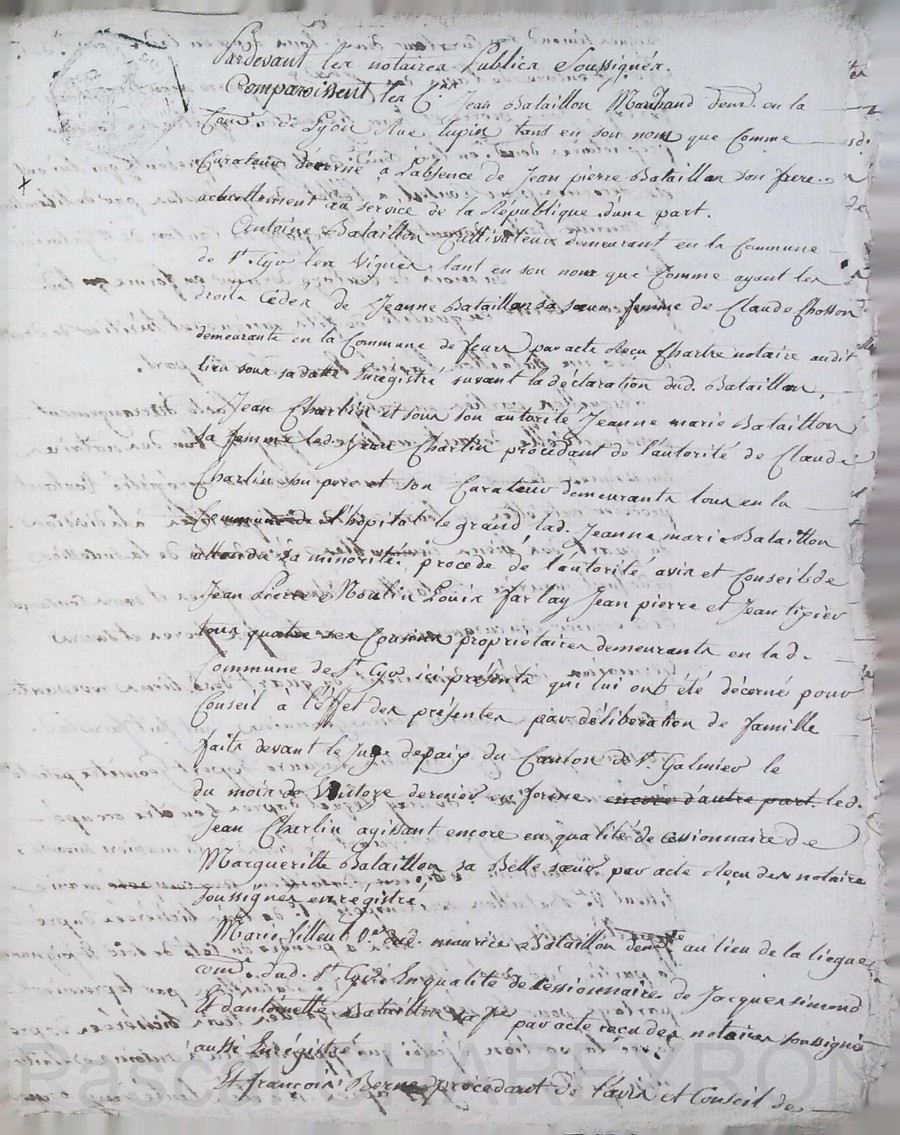 Pardevant les notaires Publics Soussignés.
Comparoissent les C.ens Jean Bataillon Marchand demt. en la
Comne. de Lyon Rue lupin tant en son nom que Comme
Curateur décerné a L'absence de Jean pierre Bataillon son frere
actuellement au service de la République d'une part.
Antoine Bataillon Cultivateur demeurant en la Commune
de St. Cyr les Vignes, tant en son nom que Comme ayant les
droits Cédés de Jeanne Bataillon sa sœur femme de Claude Chosson
demeurants en la Commune de feurs par acte Reçu Chartre notaire audit
lieu sous sa datte Enregistré suivant la déclaration dud. Bataillon,
Jean Charlin et sous son autorité Jeanne marie Bataillon
Sa femme led. Jean Charlin procédant de l'autorité de Claude
Charlin son pere et son Curateur demeurants tous en la
Commune de l'hopital le grand, lad. Jeanne marie Bataillon
attendu sa minorité, procede de l'autorité avis et Conseil de
Jean Pierre Moulin Louis farlay Jean pierre et Jean tipier
tous quatre ses Cousins propriétaires demeurants en lad.
Commune de St. Cyr ici présents qui lui ont été décerné pour
Conseil a l'effet des présentes par délibération de famille
faite devant le Juge de paix du Canton de St. Galmier le
du mois de dernier en forme, encore d'autre part led.
Jean Charlin agissant encore en qualité de cessionnaire de
Margueritte Bataillon sa Belle sœur par acte Reçu des notaires
soussignés enregistré
Marie Villeut Ve. dud. maurice Bataillon demte. au lieu de la liegue
Comne. dud. St. Cyr En qualité de Cessionnaire de Jacques simond
Et d'antoinette Bataillon sa fe. par acte reçu des notaires soussignés
aussi Enregistré
Et francois Berne procédant de l'avis et Conseil de
Pascal CHAREYRON